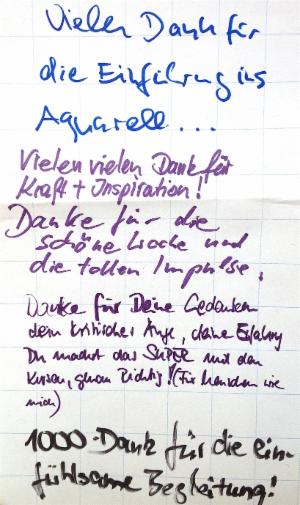 Vielen Dank für
die Einführung ins
Aquarell...
Vielen vielen Dank für
Kraft + Inspiration!
Danke für die
schöne Woche und
die tollen Impulse.
Danke für Deine Gedanken
dein kritisches Auge, deine Erfahrung
Du machst das SUPER mit den
Kursen, genau Richtig! (Für Menschen wie
mich)
1000-Dank für die ein-
fühlsame Begleitung!